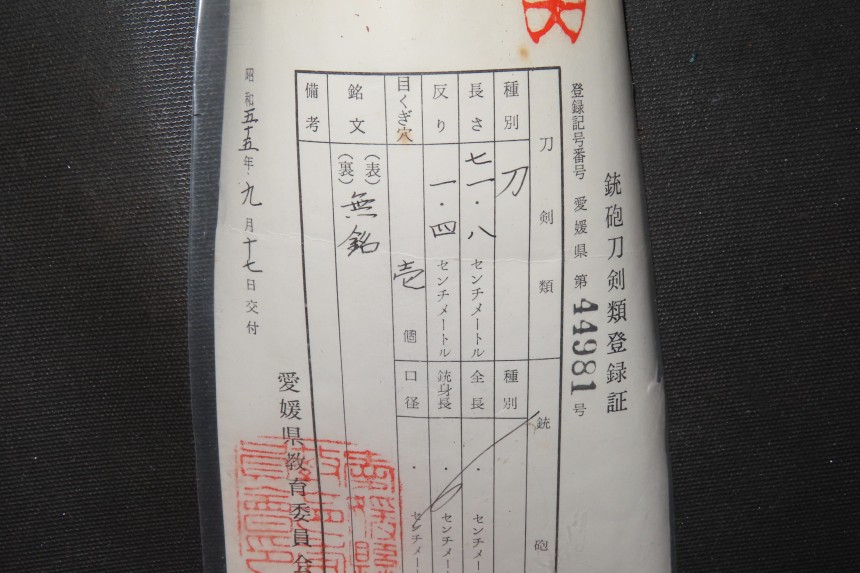 銃砲刀剣類登録証
登録記号番号 愛媛県 第 44981 号
刀剣類 銃砲
種別 刀 種別
長さ 七一・八 センチメートル 全長 ・ センチメー
反り 一・四 センチメートル 銃身長 ・ センチメー
目くぎ穴 壱 個 口径 ・ センチメー
銘文 (表) 無銘
(裏)
備考
昭和五十五年九月十七日交付
愛媛県教育委員会